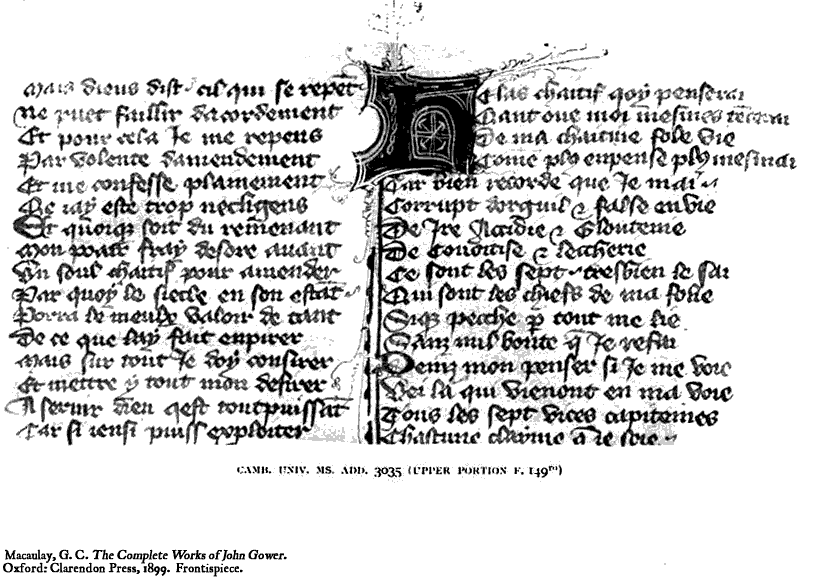 Mais dieus dist cil qui se repet
Ne puet faillir dacordement
Et pour cela Je me repens
Par volente damendement
Et me confesse plainement
Qe iay este trop necligens
Et quoiqe soit du remenant
Mon povair fray desore avant
Un soul chaitif pour amender
Par quoy le siecle en son estat
Porra le meulx valoir de tant
De ce que iay fait enpirer
Mais sur tout Je doy consirer
Et mettre y tout mon desirer
A servir dieu qest tout puissat
Car si iensi puiss exploiter
Helas chaitif qoy penserai
Qant one moi mesmes tencerai
De ma chaitive fole vie
Come plus enpense plus mesmai
Car bien recorde que Je mai
Corrupt dorguil & false envie
De Ire Accidie & Gloutenie
De Covoitise & leccherie
Ce sont les sept tresbien le sai
Qui sont les chiefs de ma folie
Siqe pecche p tout me lie
Sanz nul bonte q Je refai
Deinz mon penser si Je me voie
Vei la qui vienont en ma voie
Tous les sept vices capiteines
Chascune clayme q ie soie
CAMB. UNIV. MS. ADD. 3035 (UPPER PORTION F. 149ro)
Macaulay, G. C. The Complete Works of John Gower.
Oxford: Clarendon Press, 1899. Frontispiece.